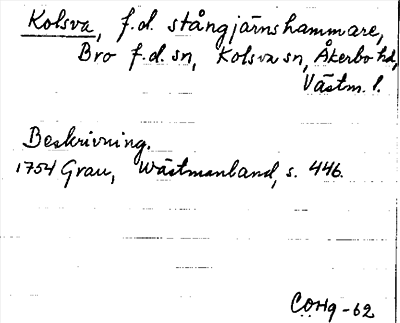 Kolsva, f.d. stångjärnshammare,
Bro f.d. sn, Kolsva sn, Åkerbo hd,
Västm. l.
Beskrivning.
1754 Grau, Wästmanland, s. 446.
COHg-62